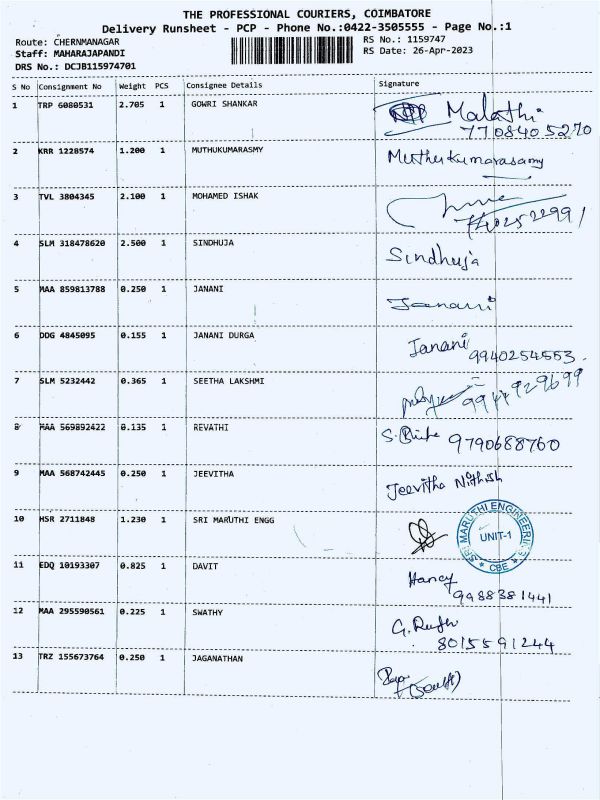 THE PROFESSIONAL COURIERS, COIMBATORE
Delivery Runsheet - PCP - Phone No.:0422-3505555 - Page No.:1
Route: CHERNMANAGAR RS No.: 1159747
Staff: MAHARAJAPANDI RS Date: 26-Apr-2023
DRS No.: DCJB115974701
S No Consignment No Weight PCS Consignee Details Signature
1 TRP 6080531 2.705 1 GOWRI SHANKAR Malathi
7708405270
2 KRR 1228574 1.200 1 MUTHUKUMARASMY Muthukumarasamy
3 TVL 3804345 2.100 1 MOHAMED ISHAK
4 SLM 318478620 2.500 1 SINDHUJA Sindhuja
5 MAA 859813788 0.250 1 JANANI Janani
6 DDG 4845095 0.155 1 JANANI DURGA Janani
9940254553.
7 SLM 5232442 0.365 1 SEETHA LAKSHMI 9944929699
8 MAA 569892422 0.135 1 REVATHI 9790688760
9 MAA 568742445 0.250 1 JEEVITHA Jeevitha Nithish
10 HSR 2711848 1.230 1 SRI MARUTHI ENGG SRI MARUTHI ENGINEERING UNIT-1 CBE
11 EDQ 10193307 0.825 1 DAVIT Hancy
9988381441
12 MAA 295590561 0.225 1 SWATHY G.
8015591244
13 TRZ 155673764 0.250 1 JAGANATHAN